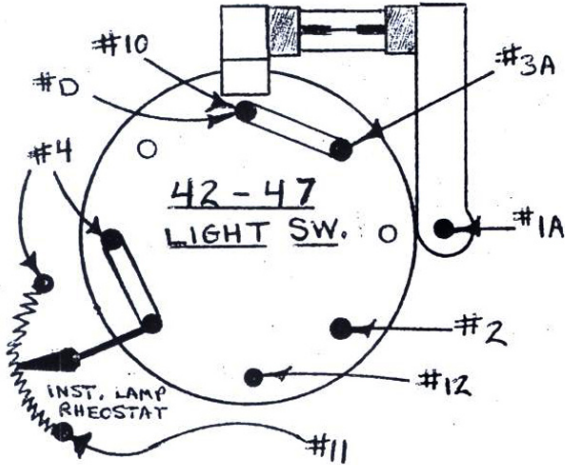 #10
#D
#3A
#4
42-47
LIGHT SW.
#1A
#2
#12
INST. LAMP
RHEOSTAT
#11